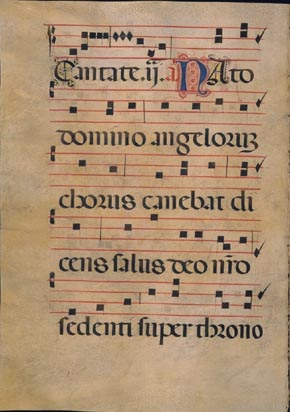 Cantate. ij. a Nato
domino angeloruʒ
chorus canebat di
cens salus deo nr̄o
sedenti super throno